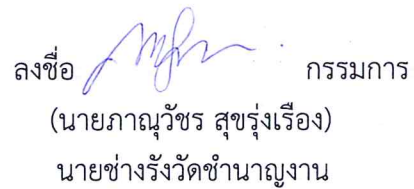 ลงชื่อ กรรมการ
(นายภาณุวัชร สุขรุ่งเรือง)
นายช่างรังวัดชำนาญงาน